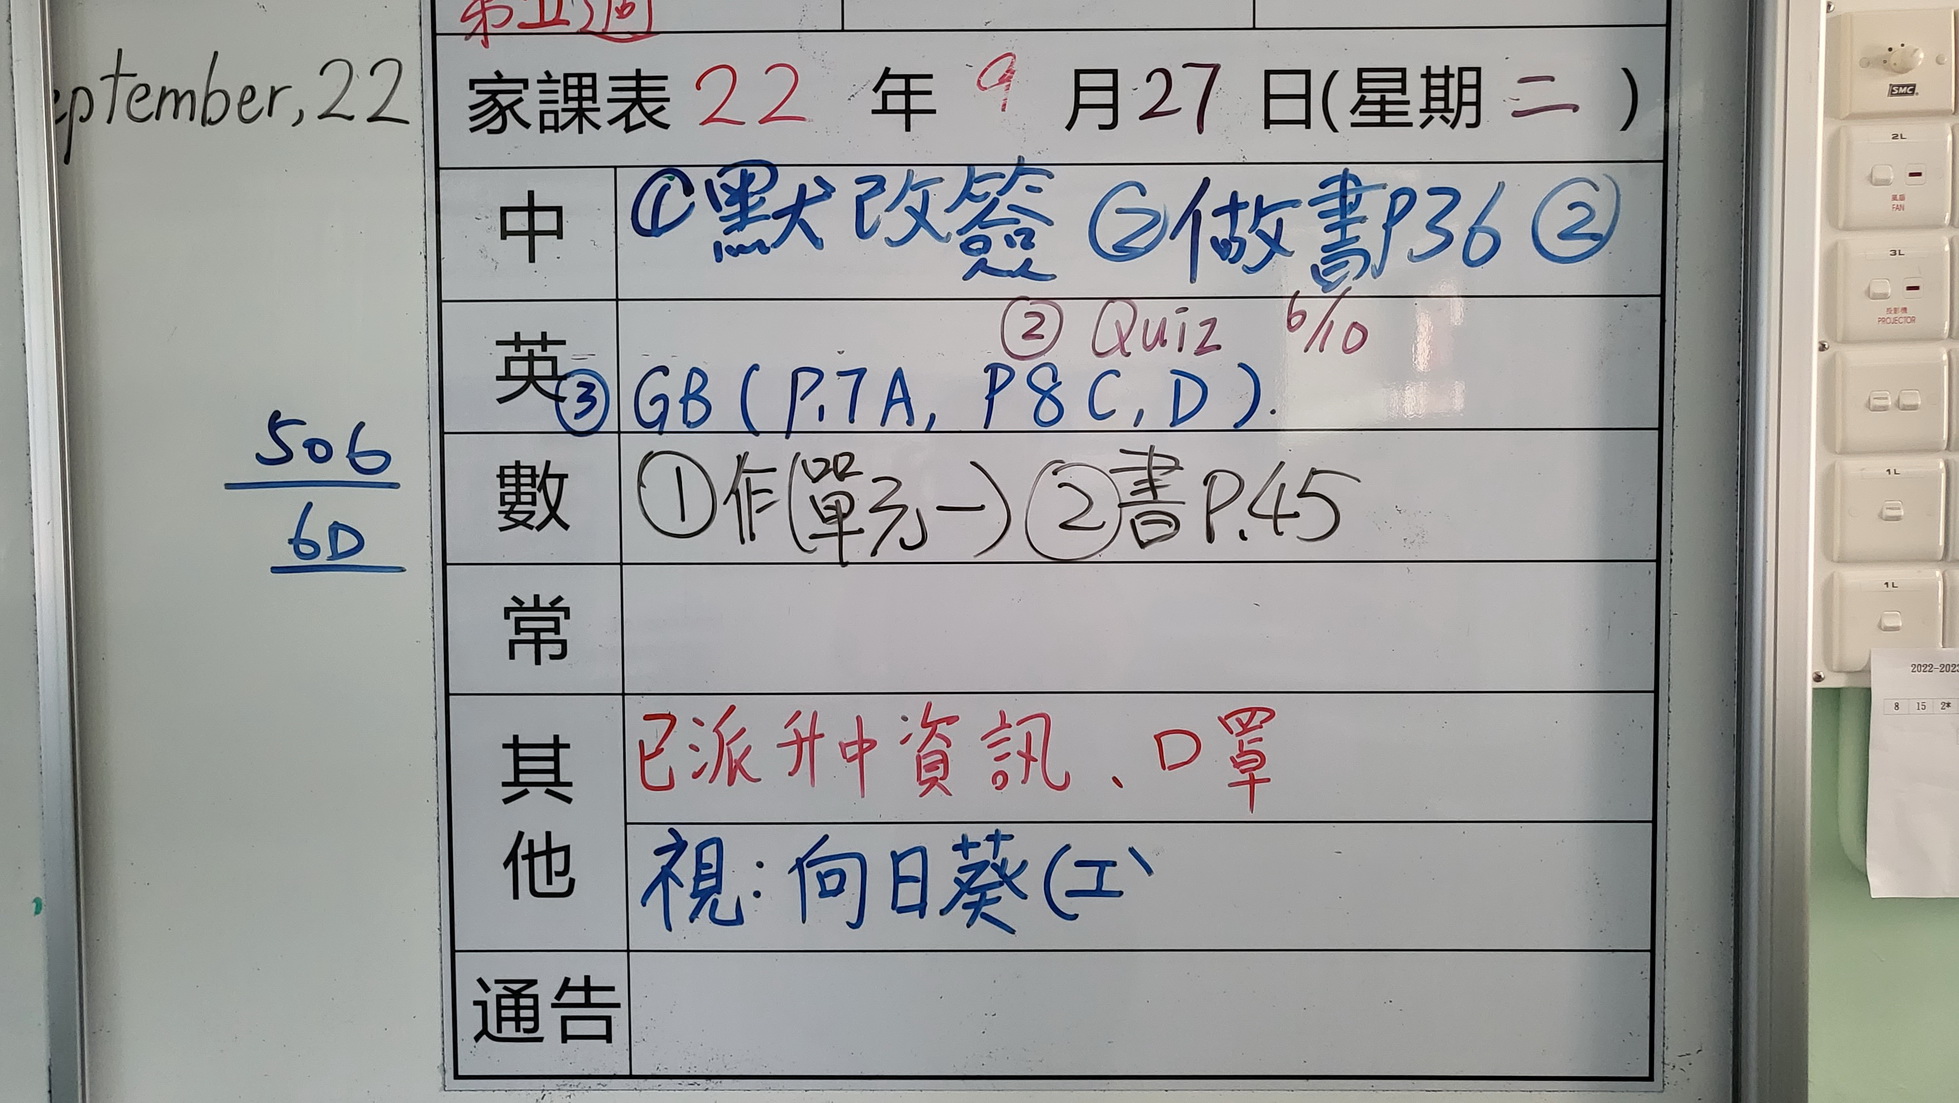 第五週
eptember, 22
家課表 22 年 9 月 27 日(星期 二 )
中 ①默改簽 ②做書P36 ②
② Quiz 6/10
英 ③ GB ( P.7A, P8C, D ).
506
6D
數 ①作(單元一) ②書P.45
常
其他
已派升中資訊、口罩
視:向日葵(工)
通告
SMC
2L
風扇
FAN
3L
投影機
PROJECTOR
1L
1L
2022-2023
8 15 2*